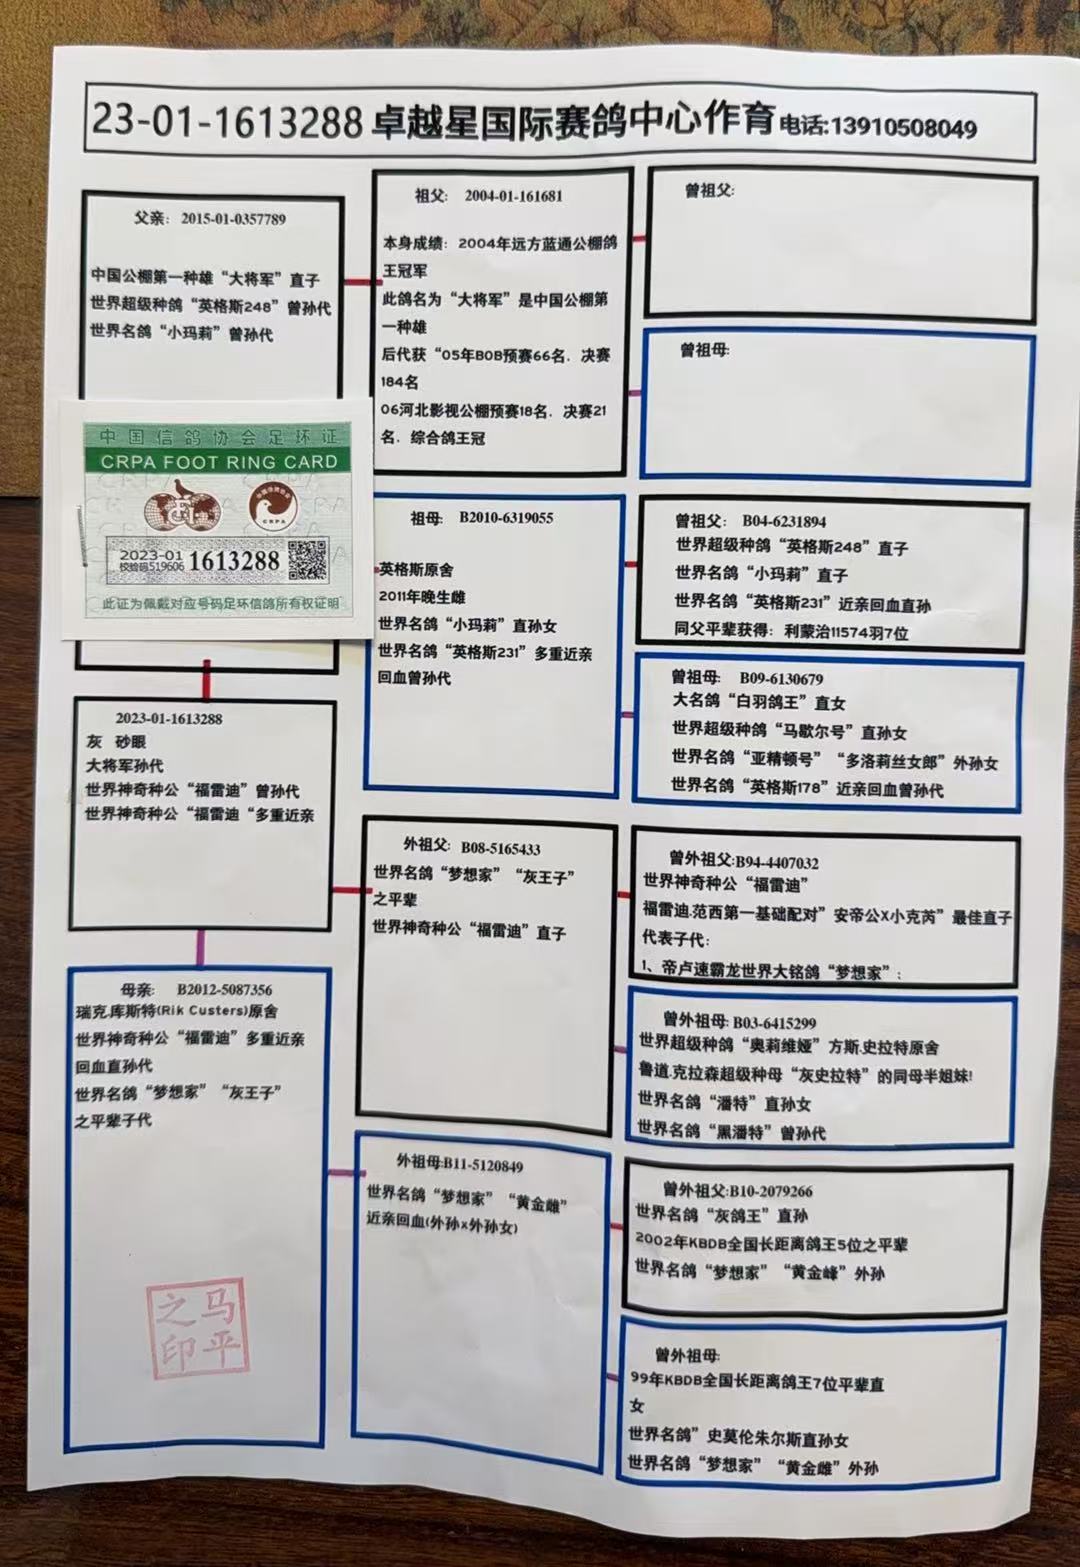 23-01-1613288卓越星国际赛鸽中心作育电话:13910508049
父亲: 2015-01-0357789
中国公棚第一种雄“大将军”直子
世界超级种鸽“英格斯248”曾孙代
世界名鸽“小玛莉”曾孙代
中国信鸽协会足环证
CRPA FOOT RING CARD
CRPA
2023-01 1613288
校验码519606
此证为佩戴对应号码足环信鸽所有权证明
2023-01-1613288
灰 砂眼
大将军孙代
世界神奇种公“福雷迪”曾孙代
世界神奇种公“福雷迪“多重近亲
母亲: B2012-5087356
瑞克.库斯特(Rik Custers)原舍
世界神奇种公“福雷迪”多重近亲
回血直孙代
世界名鸽“梦想家” “灰王子”
之平辈子代
马平之印
祖父: 2004-01-161681
本身成绩: 2004年远方蓝通公棚鸽
王冠军
此鸽名为“大将军”是中国公棚第
一种雄
后代获“05年BOB预赛66名. 决赛
184名
06河北影视公棚预赛18名. 决赛21
名. 综合鸽王冠
祖母: B2010-6319055
英格斯原舍
2011年晚生雌
世界名鸽“小玛莉”直孙女
世界名鸽“英格斯231”多重近亲
回血曾孙代
外祖父: B08-5165433
世界名鸽“梦想家” “灰王子”
之平辈
世界神奇种公“福雷迪”直子
外祖母:B11-5120849
世界名鸽“梦想家” “黄金雌”
近亲回血(外孙x外孙女)
曾祖父:
曾祖母:
曾祖父: B04-6231894
世界超级种鸽“英格斯248”直子
世界名鸽“小玛莉”直子
世界名鸽“英格斯231”近亲回血直孙
同父平辈获得: 利蒙治11574羽7位
曾祖母: B09-6130679
大名鸽“白羽鸽王”直女
世界超级种鸽“马歇尔号”直孙女
世界名鸽“亚精顿号” “多洛莉丝女郎”外孙女
世界名鸽“英格斯178”近亲回血曾孙代
曾外祖父:B94-4407032
世界神奇种公“福雷迪”
福雷迪.范西第一基础配对”安帝公X小克芮”最佳直子
代表子代:
1、帝卢速霸龙世界大铭鸽“梦想家”;
曾外祖母: B03-6415299
世界超级种鸽“奥莉维娅”方斯.史拉特原舍
鲁道.克拉森超级种母“灰史拉特”的同母半姐妹!
世界名鸽“潘特”直孙女
世界名鸽“黑潘特”曾孙代
曾外祖父:B10-2079266
世界名鸽“灰鸽王”直孙
2002年KBDB全国长距离鸽王5位之平辈
世界名鸽“梦想家” “黄金峰”外孙
曾外祖母:
99年KBDB全国长距离鸽王7位平辈直
女
世界名鸽”史莫伦朱尔斯直孙女
世界名鸽“梦想家” “黄金雌”外孙